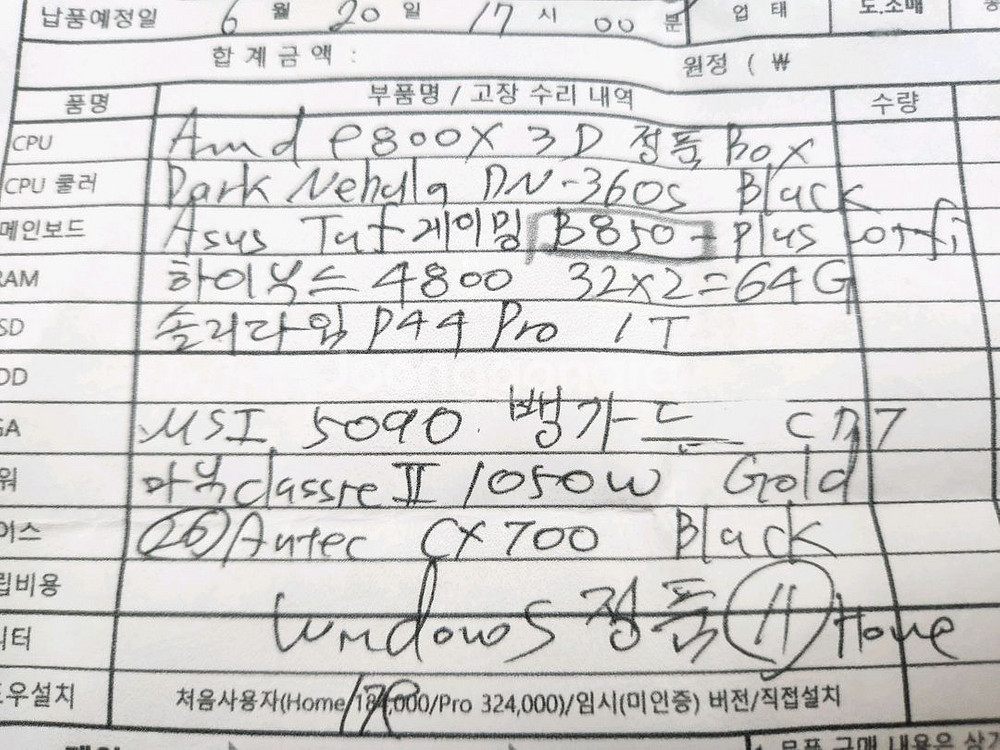 납품예정일 6 월 20 일 17 시 00 분 업 태 도.소매
합 계 금 액 : 원정 ( ₩
품명 부품명 / 고장 수리 내역 수량
CPU Amd 9800X 3D 정품 Box
CPU 쿨러 Dark Nebula DN-360s Black
메인보드 Asus Tuf 게이밍 B850 - plus
RAM 하이닉스 4800 32x2=64G
SD 솔리다임 P44 Pro 1T
DD
GA MSI 5090 뱅가드
워 마닉 classic II 1050W Gold
이스 26 Antec CX 700 Black
립비용
니터 Windows 정품 11 Home
우설치 처음사용자(Home/184,000/Pro 324,000)/임시(미인증) 버전/직접설치
부품 구매 내용은